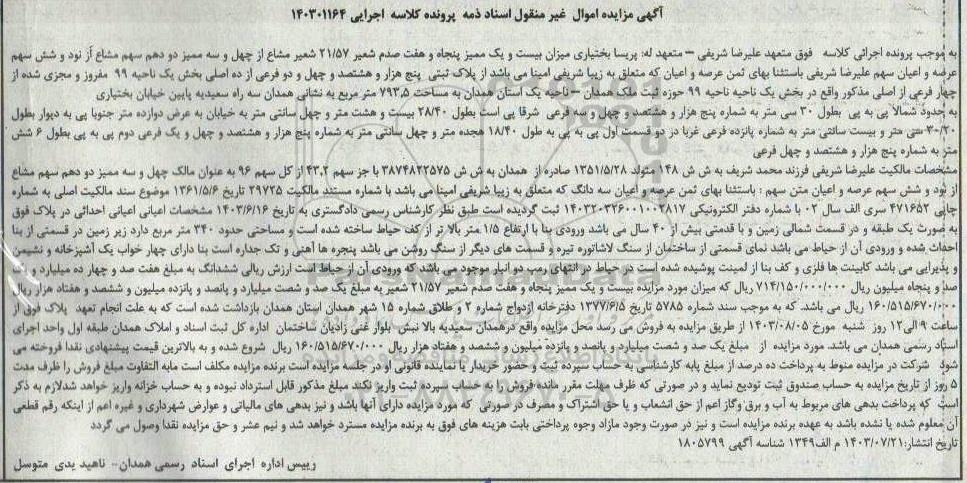 آگهی مزایده اموال غیر منقول اسناد ذمه پرونده کلاسه اجرایی ۱۴۰۳۰۱۱۶۴
به موجب پرونده اجرائی کلاسه فوق متعهد علیرضا شریفی – متعهد له: پریسا بختیاری میزان بیست و یک ممیز پنجاه و هفت صدم شعیر ۲۱/۵۷ شعیر مشاع از چهل و سه ممیز دو دهم سهم مشاع از نود و شش سهم
عرصه و اعیان سهم علیرضا شریفی باستثنا بهای ثمن عرصه و اعیان که متعلق به زیبا شریفی امینا می باشد از پلاک ثبتی پنج هزار و هشتصد و چهل و دو فرعی از ده اصلی بخش یک ناحیه ۹۹ مفروز و مجزی شده از
چهار فرعی از اصلی مذکور واقع در بخش یک ناحیه ناحیه ۹۹ حوزه ثبت ملک همدان – ناحیه یک استان همدان به مساحت ۷۹۳,۵ متر مربع به نشانی همدان سه راه سعیدیه پایین خیابان بختیاری
به حدود شمالا پی به پی بطول ۳۰ سی متر به شماره پنج هزار و هشتصد و چهل و سه فرعی شرقا پی است بطول ۲۸/۴۰ بیست و هشت متر و چهل سانتی متر به خیابان به عرض دوازده متر جنوبا پی به دیوار بطول
۳۰/۲۰ سی متر و بیست سانتی متر به شماره پانزده فرعی غربا در دو قسمت اول پی به پی به طول ۱۸/۴۰ هجده متر و چهل سانتی متر به شماره پنج هزار و هشتصد و چهل و یک فرعی دوم پی به پی بطول ۶ شش
متر به شماره پنج هزار و هشتصد و چهل فرعی
مشخصات مالکیت علیرضا شریفی فرزند محمد شریف به ش ش ۱۴۸ متولد ۱۳۵۱/۵/۲۸ صادره از همدان به ش ش ۳۸۷۴۸۲۲۵۷۵ با جز سهم ۴۳,۲ از کل سهم ۹۶ به عنوان مالک چهل و سه ممیز دو دهم سهم مشاع
از نود و شش سهم عرصه و اعیان متن سهم : باستثنا بهای ثمن عرصه و اعیان سه دانگ که متعلق به زیبا شریفی امینا می باشد با شماره مستند مالکیت ۲۹۷۲۵ تاریخ ۱۳۶۱/۵/۶ موضوع سند مالکیت اصلی به شماره
چاپی ۴۷۱۶۵۲ سری الف سال ۰۲ با شماره دفتر الکترونیکی ۱۴۰۳۲۰۳۲۶۰۰۱۰۰۲۸۱۷ ثبت گردیده است طبق نظر کارشناس رسمی دادگستری به تاریخ ۱۴۰۳/۶/۱۶ مشخصات اعیانی اعیانی احداثی در پلاک فوق
به صورت یک طبقه و در قسمت شمالی زمین و با قدمتی بیش از ۴۰ سال می باشد ورودی بنا با ارتفاع ۱/۵ متر بالا تر از کف حیاط ساخته شده است و مساحتی حدود ۳۴۰ متر مربع دارد زیر زمین در قسمتی از بنا
احداث شده و ورودی آن از حیاط می باشد نمای قسمتی از ساختمان از سنگ لاشاتوره تیره و قسمت های دیگر از سنگ روشن می باشد پنجره ها آهنی و تک جداره است بنا دارای چهار خواب یک آشپزخانه و نشیمن
و پذیرایی می باشد کابینت ها فلزی و کف بنا از لمینت پوشیده شده است در حیاط در انتهای رمپ دو انبار موجود می باشد که ورودی آن از حیاط است ارزش ریالی ششدانگ به مبلغ هفت صد و چهار ده میلیارد و یک
صد و پنجاه میلیون ریال ۷۱۴/۱۵۰/۰۰۰/۰۰۰ ریال که میزان مورد مزایده بیست و یک ممیز پنجاه و هفت صدم شعیر ۲۱/۵۷ شعیر به مبلغ یک صد و شصت میلیارد و پانصد و پانزده میلیون و ششصد و هفتاد هزار ریال
۱۶۰/۵۱۵/۶۷۰/۰۰۰ ریال می باشد. که به موجب سند شماره ۵۷۸۵ تاریخ ۱۳۷۷/۶/۵ دفترخانه ازدواج شماره ۲ و طلاق شماره ۱۵ شهر همدان استان همدان بازداشت شده است که به علت انجام تعهد پلاک فوق از
ساعت ۹ الی ۱۲ روز شنبه مورخ ۱۴۰۳/۰۸/۰۵ از طریق مزایده به فروش می رسد محل مزایده واقع درهمدان سعیدیه بالا نبش بلوار غنی زادیان ساختمان اداره کل ثبت اسناد و املاک همدان طبقه اول واحد اجرای
اسناد رسمی همدان می باشد. مورد مزایده از مبلغ یک صد و شصت میلیارد و پانصد و پانزده میلیون و ششصد و هفتاد هزار ریال ۱۶۰/۵۱۵/۶۷۰/۰۰۰ ریال شروع شده و به بالاترین قیمت پیشنهادی نقدا فروخته می
شود شرکت در مزایده منوط به پرداخت ده درصد از مبلغ پایه کارشناسی به حساب سپرده ثبت و حضور خریدار یا نماینده قانونی او در جلسه مزایده است برنده مزایده مکلف است مابه التفاوت مبلغ فروش را ظرف مدت
۵ روز از تاریخ مزایده به حساب صندوق ثبت تودیع نماید و در صورتی که ظرف مهلت مقرر مانده فروش را به حساب سپرده ثبت واریز نکند مبلغ مذکور قابل استرداد نبوده و به حساب خزانه واریز خواهد شدلازم به ذکر
است که پرداخت بدهی های مربوط به آب و برق وگاز اعم از حق انشعاب و یا حق اشتراک و مصرف در صورتی که مورد مزایده دارای آنها باشد و نیز بدهی های مالیاتی و عوارض شهرداری و غیره اعم از اینکه رقم قطعی
آن معلوم شده یا نشده باشد به عهده برنده مزایده است و نیز در صورت وجود مازاد وجوه پرداختی بابت هزینه های فوق به برنده مزایده مسترد خواهد شد و نیم عشر و حق مزایده نقدا وصول می گردد
تاریخ انتشار: ۱۴۰۳/۰۷/۲۱ م الف ۱۳۴۹ شناسه آگهی ۱۸۰۵۷۹۹
رییس اداره اجرای اسناد رسمی همدان- ناهید یدی متوسل